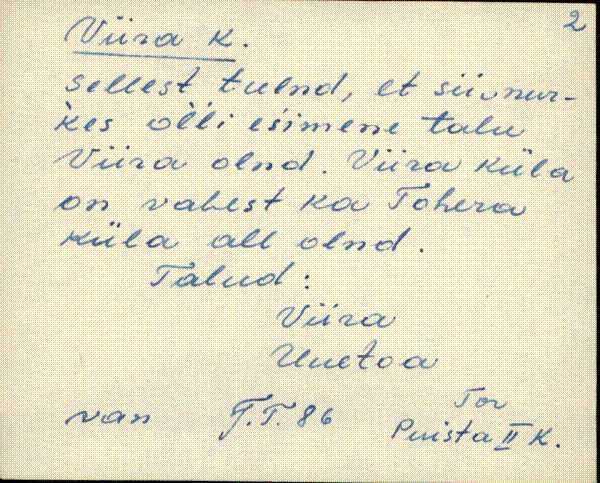 2
Viira k.
sellest tulnd, et siinur-
kes olli esimene talu
Viira olnd. Viira küla
on vahest ka Tohera
küla all olnd.
Talud:
Viira
Uuetoa
van T.T. 86 Tor
Puista II K.